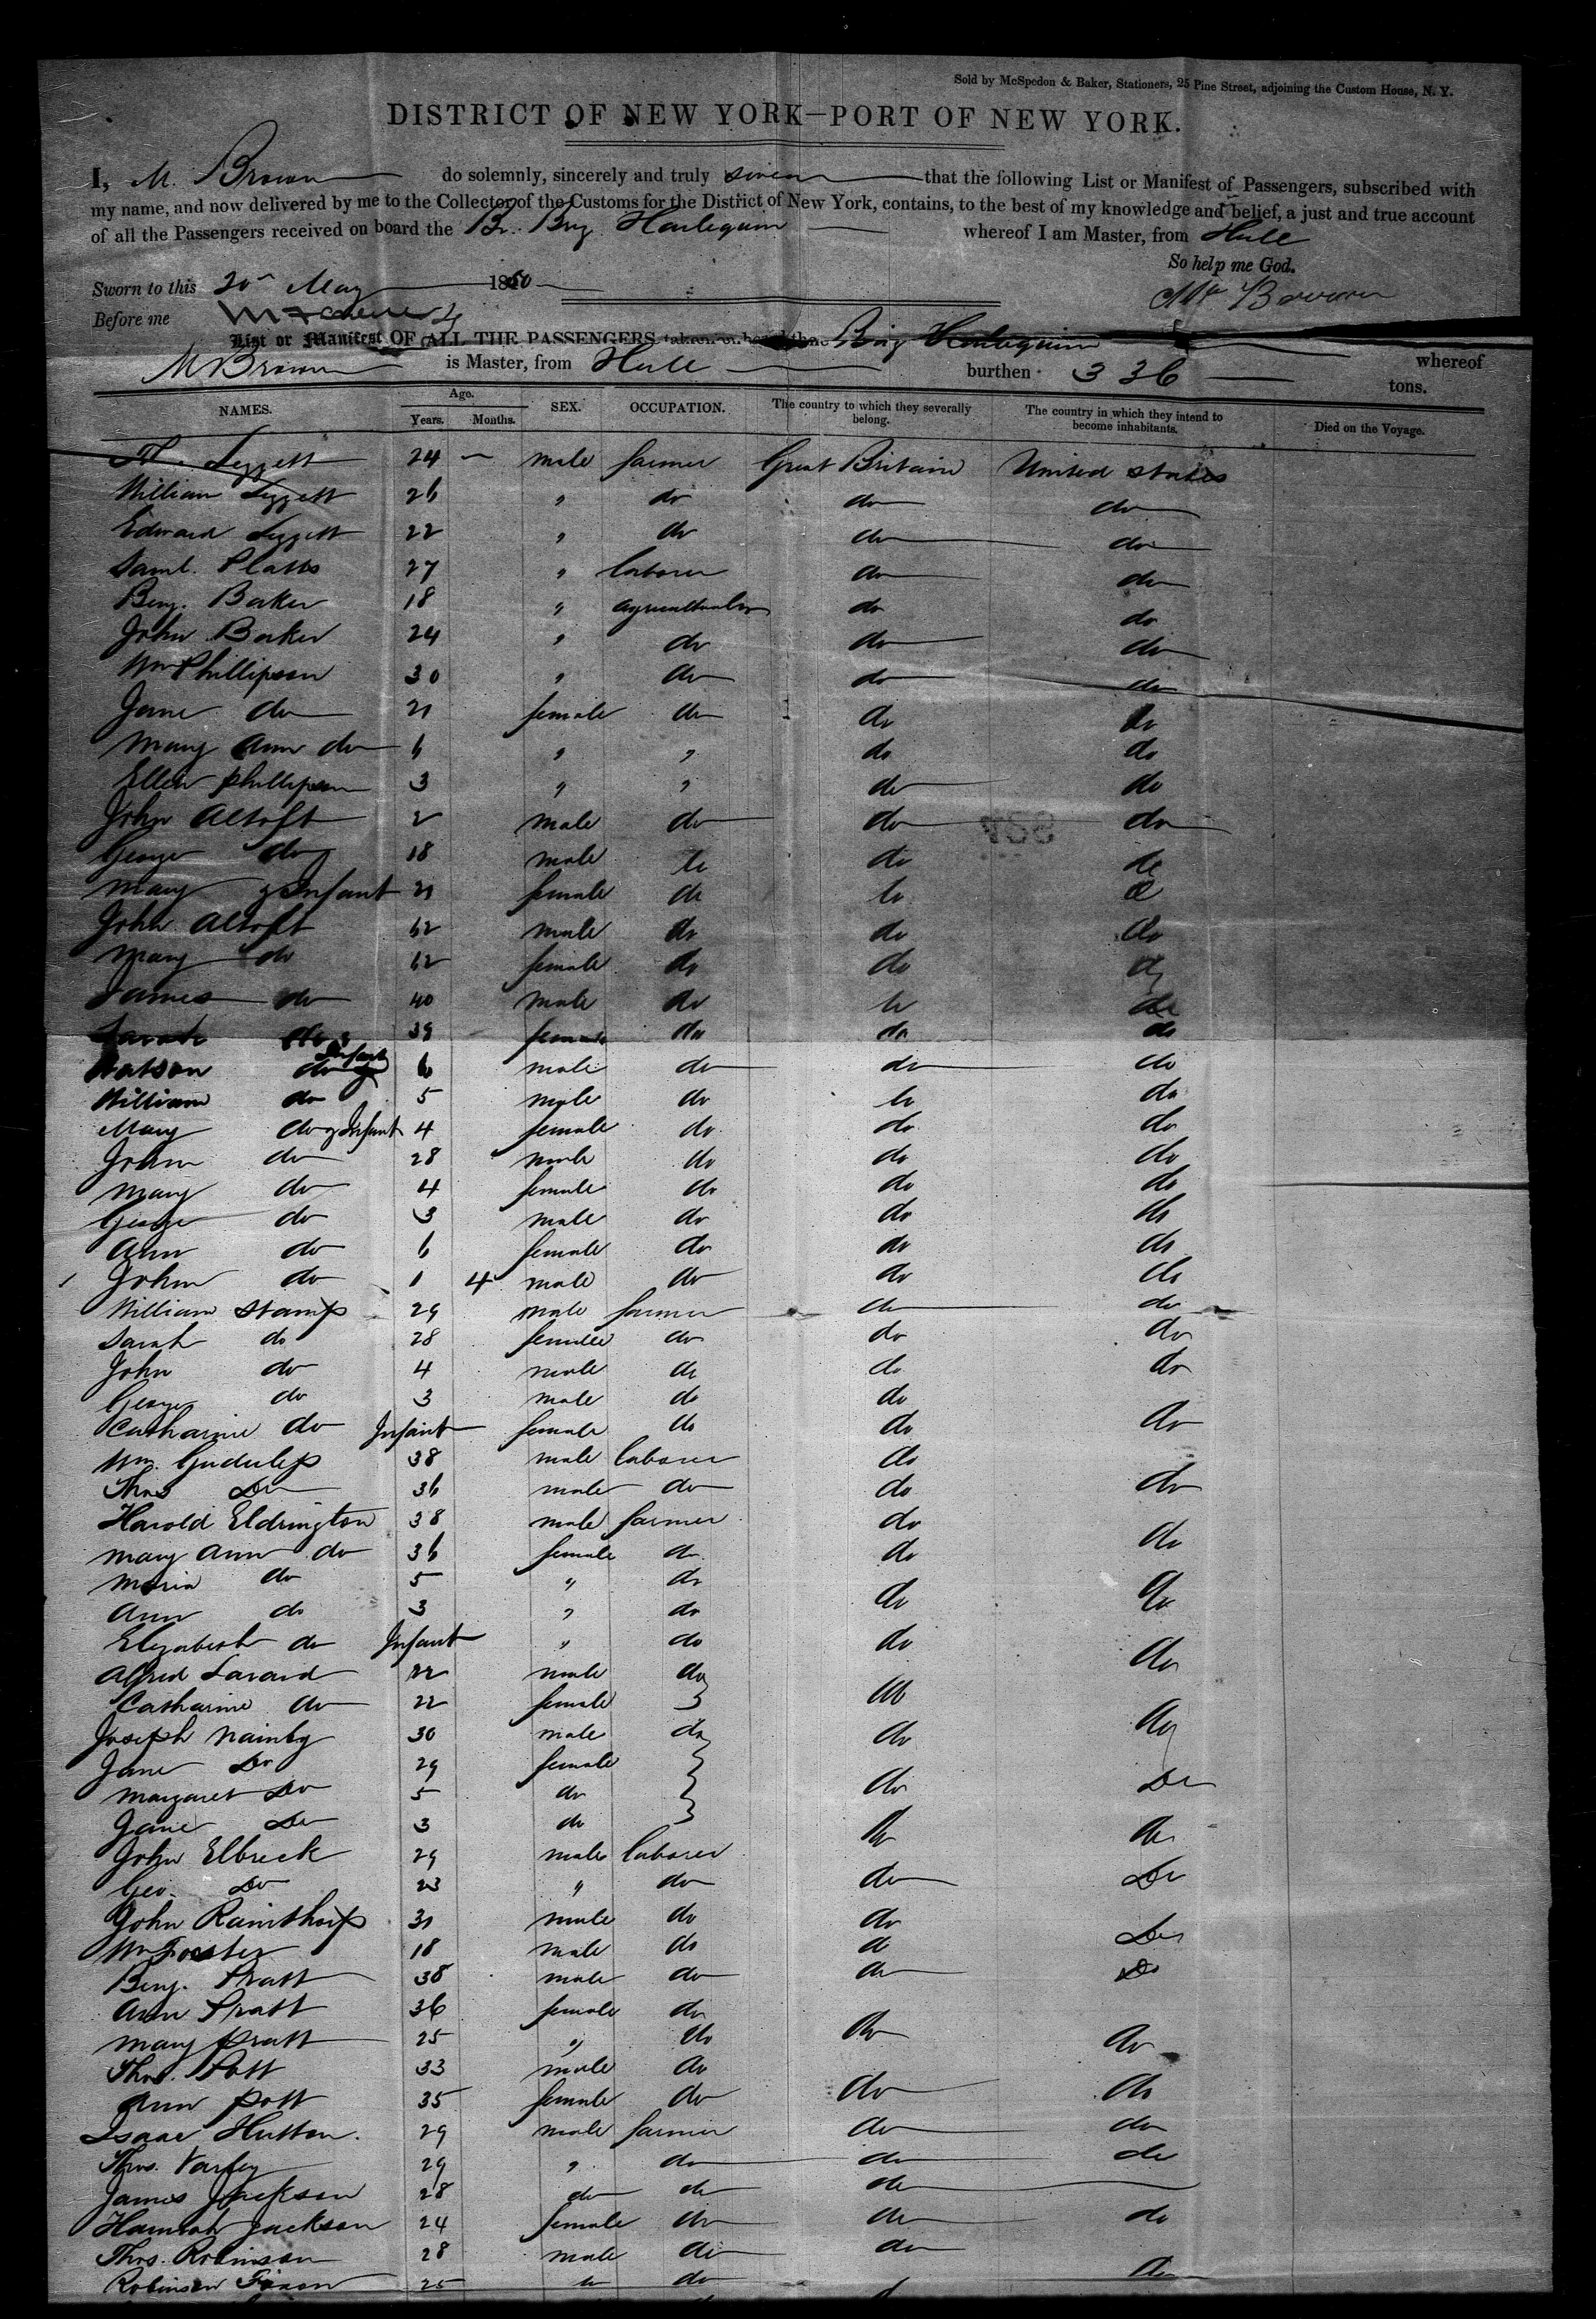 Sold by McSpedon & Baker, Stationers, 25 Pine Street, adjoining the Custom House, N. Y.
DISTRICT OF NEW YORK—PORT OF NEW YORK.
I, M. Brown do solemnly, sincerely and truly swear that the following List or Manifest of Passengers, subscribed with
my name, and now delivered by me to the Collector of the Customs for the District of New York, contains, to the best of my knowledge and belief, a just and true account
of all the Passengers received on board the Br. Brig Harlequin whereof I am Master, from Hull
So help me God.
Sworn to this 20 May 1850 M Brown
Before me
List or Manifest OF ALL THE PASSENGERS taken on board the Brig Harlequin whereof
M Brown is Master, from Hull burthen 336 tons.
NAMES. Age. Years. Months. SEX. OCCUPATION. The country to which they severally belong. The country in which they intend to become inhabitants. Died on the Voyage.
Leggett 24 male farmer Great Britain United States
William Leggett 26 " do do do
Edward Leggett 22 " do do do
Saml. Platts 27 " laborer do do
Benj. Barker 18 " do do
John Barker 24 " do do do
Wm Phillipson 30 " do do do
Jane do 21 female do do do
Mary Ann do 6 " " do do
Ellen Phillipson 3 " " do do
John Altoft 2 male do do do
George do 18 male do do do
Mary & Infant 21 female do do do
John Altoft 62 male do do do
Mary do 62 female do do do
James do 40 male do do do
Sarah do & Infant 39 female do do do
Watson do 6 male do do do
William do 5 male do do do
Mary do & Infant 4 female do do do
John do 28 male do do do
Mary do 4 female do do do
George do 3 male do do do
Ann do 6 female do do do
John do 1 4 male do do do
William Stamp 29 male farmer do do
Sarah do 28 female do do do
John do 4 male do do do
George do 3 male do do
Catharine do Infant female do do do
Wm. 38 male laborer do
Thos Do 36 male do do do
Harold Eldrington 38 male farmer do
Mary Ann do 36 female do do do
Maria do 5 " do
Ann do 3 " do do do
Elizabeth do Infant " do do
Alfred Lavard 22 male do do
Catharine do 22 female do
Joseph Nainby 30 male do do do
Jane Do 29 female
Margaret Do 5 do do Do
Jane Do 3 do do do
John Elbreck 29 male laborer
Geo. Do 23 " do do Do
John Rainthorp 31 male do do
Wm Forster 18 male do do Do
Benj. Pratt 38 male do do Do
Ann Pratt 36 female do
Mary Pratt 25 " do do do
Thos. Pott 33 male do
Ann Pott 35 female do do do
Isaac Hutton. 29 male farmer do do
Thos. Varley 29 " do do do
James Jackson 28 do do do
Hannah Jackson 24 female do do do
Thos. Robinson 28 male do do
Robinson 25 do do do